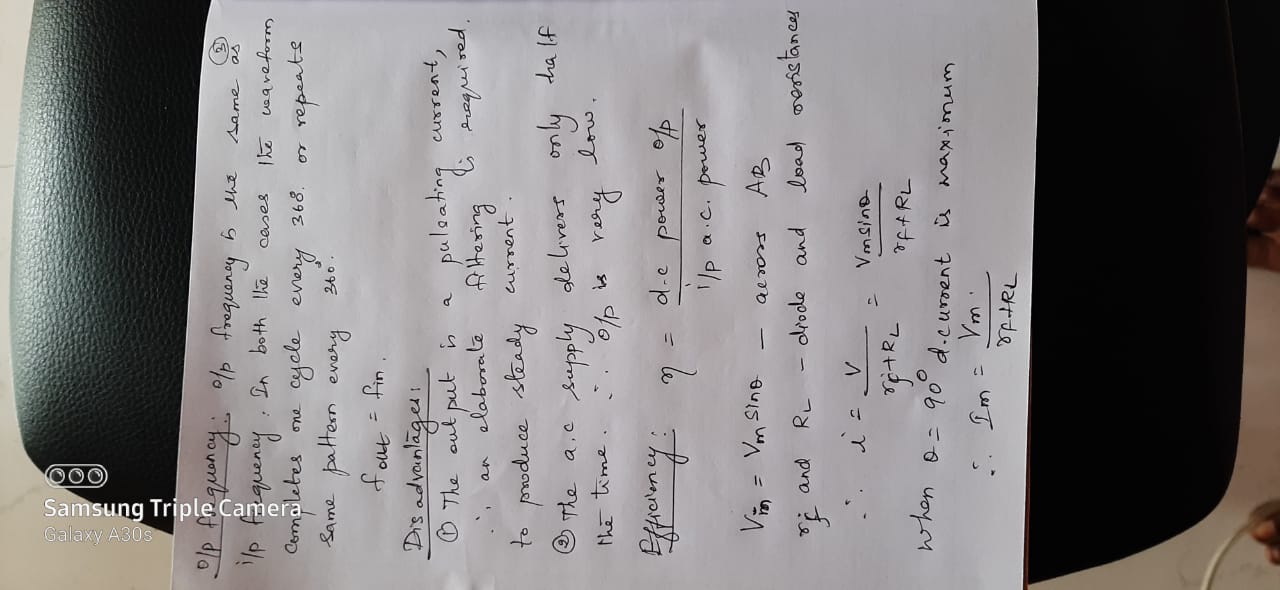 ③
o/p frequency: o/p frequency is the same as
i/p frequency: In both the cases the waveform
completes one cycle every 360. or repeats
same pattern every 360°.
fout = fin.
Disadvantages:
① The output is a pulsating current,
∴ an elaborate filtering is required.
to produce steady current.
② The a.c supply delivers only half
the time. ∴ o/p is very low.
Efficiency: η = d.c power o/p
i/p a.c. power
Vin = Vm sinθ — across AB
rf and RL – diode and load resistances
∴ i = V / rf+RL = Vm sinθ / rf+RL
When θ = 90° d.current is maximum
∴ Im = Vm / rf+RL
Samsung Triple Camera
Galaxy A30s